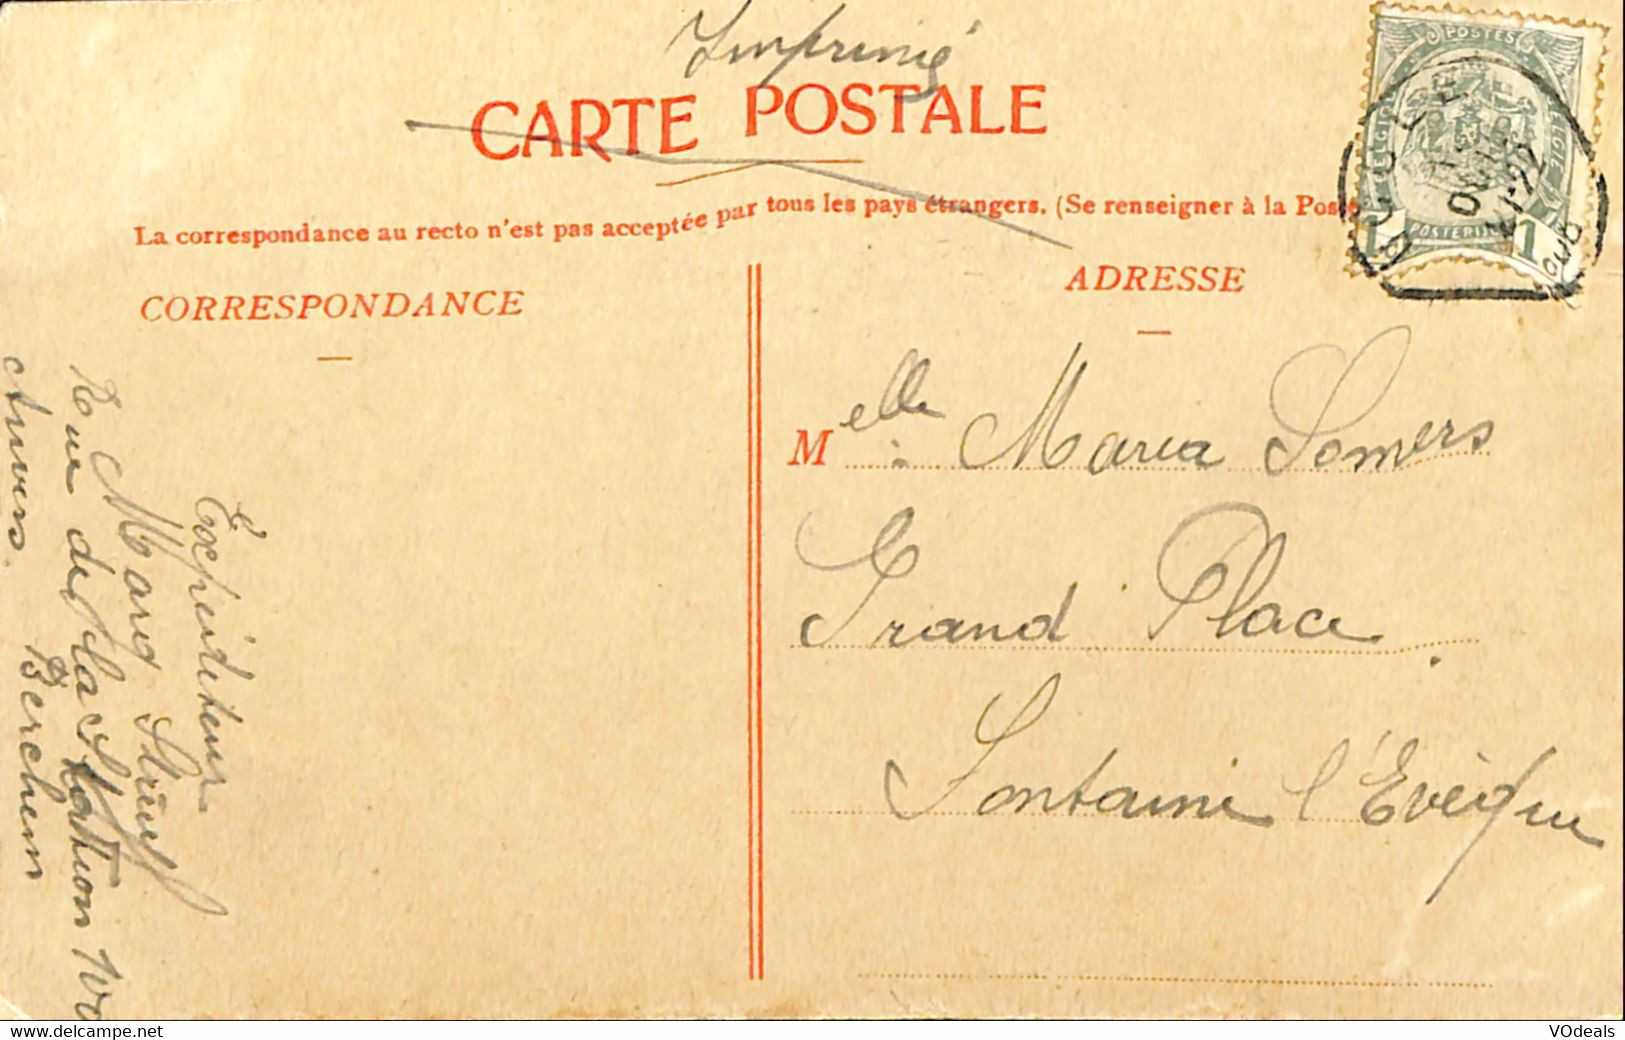 Imprimé
CARTE POSTALE
La correspondance au recto n'est pas acceptée par tous les pays étrangers. (Se renseigner à la Poste
CORRESPONDANCE
ADRESSE
POSTES
POSTERIJEN
1 1
Melle Maria Somers
Grand Place
Fontaine l'Evêque
Expéditeur
Marg
Rue de la Station 100
Berchem
Anvers.
VOdeals